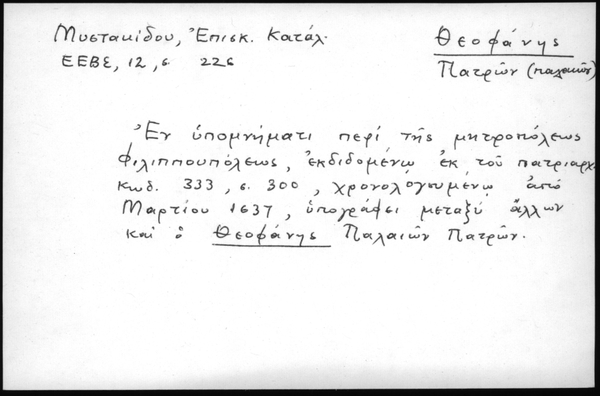 Μυστακίδου, Ἐπισκ. Κατάλ.
ΕΕΒΣ, 12, σ. 226
Θεοφάνης
Πατρῶν (παλαιῶν)
Ἐν ὑπομνήματι περί τῆς μητροπόλεως
Φιλιππουπόλεως, ἐκδιδομένῳ ἐκ τοῦ πατριαρχ.
κωδ. 333, σ. 300, χρονολογουμένῳ ἀπό
Μαρτίου 1637, ὑπογράφει μεταξύ ἄλλων
καί ὁ Θεοφάνης Παλαιῶν Πατρῶν.